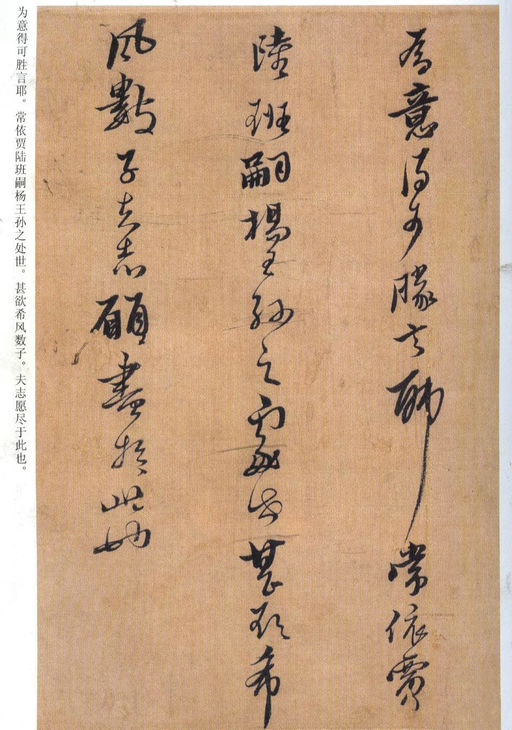 为意得可胜言耶。常依贾陆班嗣杨王孙之处世。甚欲希风数子。夫志愿尽于此也。
为意得可勝言耶常依賈
陸班嗣楊王孫之處世甚欲希
風數子夫志願盡於此也